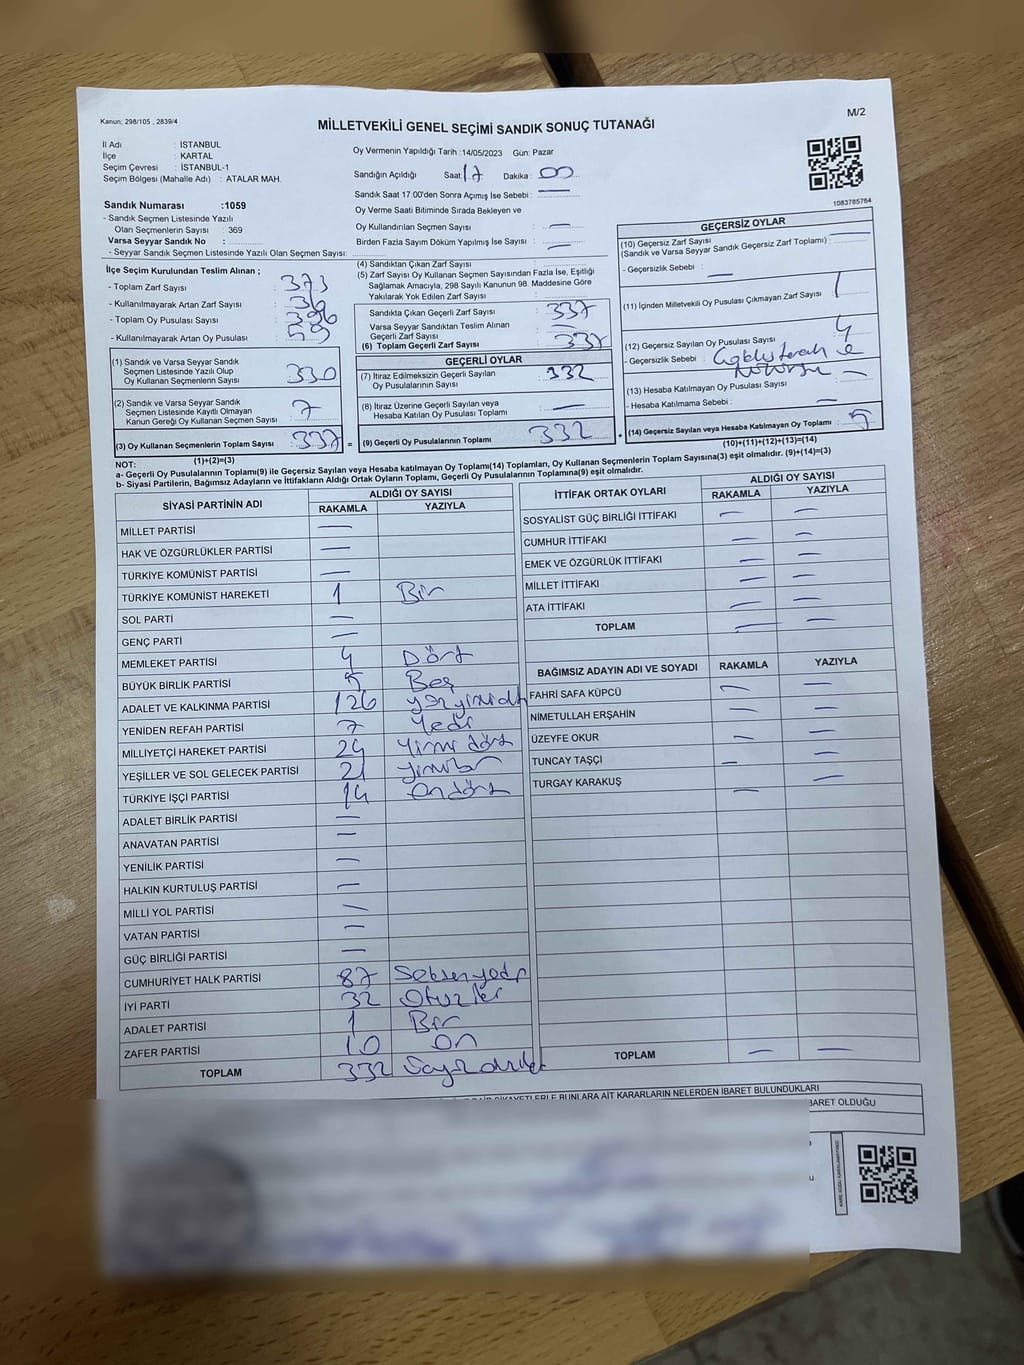 Kanun; 298/105 , 2839/4
M/2
MİLLETVEKİLİ GENEL SEÇİMİ SANDIK SONUÇ TUTANAĞI
İl Adı : İSTANBUL
İlçe : KARTAL
Seçim Çevresi : İSTANBUL-1
Seçim Bölgesi (Mahalle Adı) : ATALAR MAH.
Oy Vermenin Yapıldığı Tarih :14/05/2023 Gün: Pazar
Sandığın Açıldığı Saat: 17 Dakika: 00
Sandık Saat 17.00'den Sonra Açımış İse Sebebi : —
Oy Verme Saati Bitiminde Sırada Bekleyen ve
Oy Kullandırılan Seçmen Sayısı : —
Birden Fazla Sayım Döküm Yapılmış İse Sayısı : —
1083785764
Sandık Numarası :1059
- Sandık Seçmen Listesinde Yazılı
Olan Seçmenlerin Sayısı : 369
Varsa Seyyar Sandık No :
- Seyyar Sandık Seçmen Listesinde Yazılı Olan Seçmen Sayısı:
İlçe Seçim Kurulundan Teslim Alınan ;
- Toplam Zarf Sayısı : 373
- Kullanılmayarak Artan Zarf Sayısı : 36
- Toplam Oy Pusulası Sayısı : 396
- Kullanılmayarak Artan Oy Pusulası : 59
(1) Sandık ve Varsa Seyyar Sandık
Seçmen Listesinde Yazılı Olup
Oy Kullanan Seçmenlerin Sayısı : 330
(2) Sandık ve Varsa Seyyar Sandık
Seçmen Listesinde Kayıtlı Olmayan
Kanun Gereği Oy Kullanan Seçmen Sayısı : 7
(3) Oy Kullanan Seçmenlerin Toplam Sayısı : 337 =
(1)+(2)=(3)
(4) Sandıktan Çıkan Zarf Sayısı :
(5) Zarf Sayısı Oy Kullanan Seçmen Sayısından Fazla İse, Eşitliği
Sağlamak Amacıyla, 298 Sayılı Kanunun 98. Maddesine Göre
Yakılarak Yok Edilen Zarf Sayısı :
Sandıkta Çıkan Geçerli Zarf Sayısı : 337
Varsa Seyyar Sandıktan Teslim Alınan
Geçerli Zarf Sayısı : —
(6) Toplam Geçerli Zarf Sayısı : 337
GEÇERLİ OYLAR
(7) İtiraz Edilmeksizin Geçerli Sayılan
Oy Pusulalarının Sayısı : 332
(8) İtiraz Üzerine Geçerli Sayılan veya
Hesaba Katılan Oy Pusulası Toplamı : —
(9) Geçerli Oy Pusulalarının Toplamı : 332 +
GEÇERSİZ OYLAR
(10) Geçersiz Zarf Sayısı : —
(Sandık ve Varsa Seyyar Sandık Geçersiz Zarf Toplamı)
- Geçersizlik Sebebi : —
(11) İçinden Milletvekili Oy Pusulası Çıkmayan Zarf Sayısı : 1
(12) Geçersiz Sayılan Oy Pusulası Sayısı : 4
- Geçersizlik Sebebi :
(13) Hesaba Katılmayan Oy Pusulası Sayısı : —
- Hesaba Katılmama Sebebi : —
(14) Geçersiz Sayılan veya Hesaba Katılmayan Oy Toplamı : 5
(10)+(11)+(12)+(13)=(14)
NOT:
a- Geçerli Oy Pusulalarının Toplamı(9) ile Geçersiz Sayılan veya Hesaba katılmayan Oy Toplamı(14) Toplamları, Oy Kullanan Seçmenlerin Toplam Sayısına(3) eşit olmalıdır. (9)+(14)=(3)
b- Siyasi Partilerin, Bağımsız Adayların ve İttifakların Aldığı Ortak Oyların Toplamı, Geçerli Oy Pusulalarının Toplamına(9) eşit olmalıdır.
SİYASİ PARTİNİN ADI ALDIĞI OY SAYISI
RAKAMLA YAZIYLA
MİLLET PARTİSİ —
HAK VE ÖZGÜRLÜKLER PARTİSİ —
TÜRKİYE KOMÜNİST PARTİSİ —
TÜRKİYE KOMÜNİST HAREKETİ 1 Bir
SOL PARTİ —
GENÇ PARTİ —
MEMLEKET PARTİSİ 4 Dört
BÜYÜK BİRLİK PARTİSİ 5 Beş
ADALET VE KALKINMA PARTİSİ 126
YENİDEN REFAH PARTİSİ 7 Yedi
MİLLİYETÇİ HAREKET PARTİSİ 24 Yirmi dört
YEŞİLLER VE SOL GELECEK PARTİSİ 21
TÜRKİYE İŞÇİ PARTİSİ 14 Ondört
ADALET BİRLİK PARTİSİ —
ANAVATAN PARTİSİ —
YENİLİK PARTİSİ —
HALKIN KURTULUŞ PARTİSİ —
MİLLİ YOL PARTİSİ —
VATAN PARTİSİ —
GÜÇ BİRLİĞİ PARTİSİ —
CUMHURİYET HALK PARTİSİ 87 Seksenyedi
İYİ PARTİ 32 Otuziki
ADALET PARTİSİ 1 Bir
ZAFER PARTİSİ 10 On
TOPLAM 332
İTTİFAK ORTAK OYLARI ALDIĞI OY SAYISI
RAKAMLA YAZIYLA
SOSYALİST GÜÇ BİRLİĞİ İTTİFAKI — —
CUMHUR İTTİFAKI — —
EMEK VE ÖZGÜRLÜK İTTİFAKI — —
MİLLET İTTİFAKI — —
ATA İTTİFAKI — —
TOPLAM — —
BAĞIMSIZ ADAYIN ADI VE SOYADI RAKAMLA YAZIYLA
FAHRİ SAFA KÜPCÜ — —
NİMETULLAH ERŞAHİN — —
ÜZEYFE OKUR — —
TUNCAY TAŞÇI — —
TURGAY KARAKUŞ — —
TOPLAM — —
BUNLARA AİT KARARLARIN NELERDEN İBARET BULUNDUKLARI
İBARET OLDUĞU